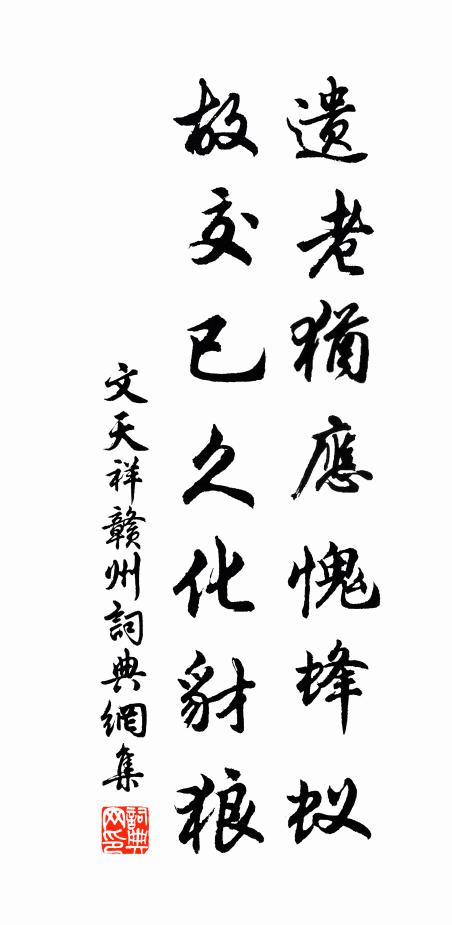 遺老猶應愧蜂蚁
故交已久化豺狼
文天祥贛州詞典網集
詞典网印